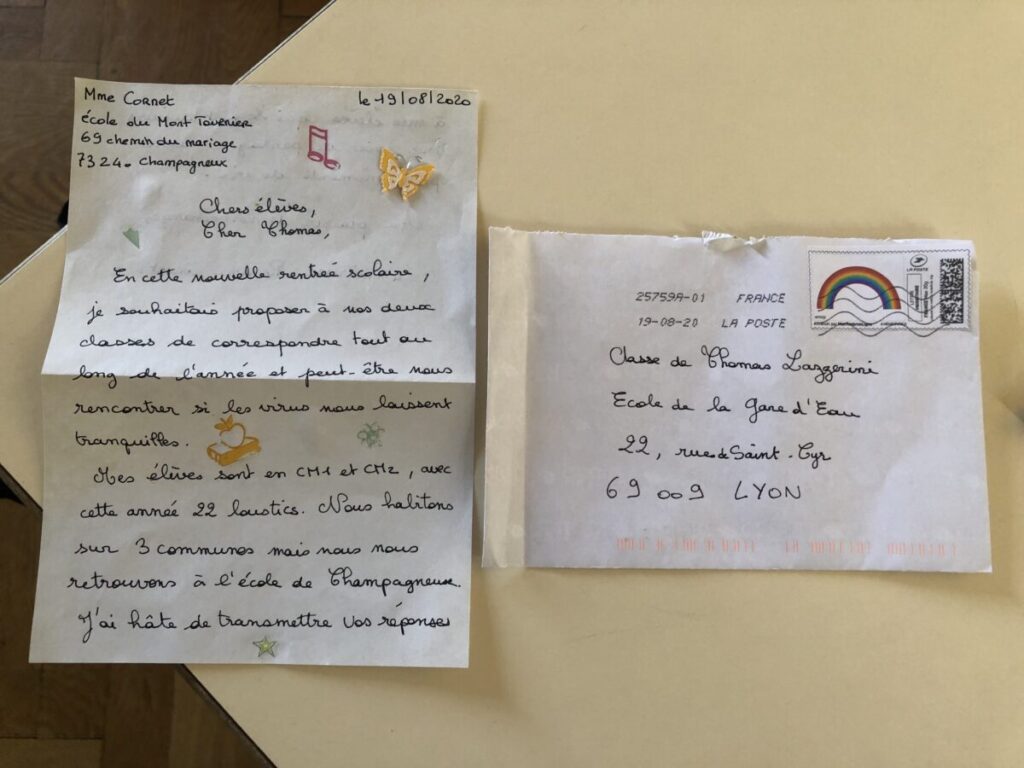 Mme Cornet
le 19/08/2020
école du Mont Tournier
69 chemin du mariage
73240 Champagneux
Chers élèves,
Cher Thomas,
En cette nouvelle rentrée scolaire,
je souhaitais proposer à nos deux
classes de correspondre tout au
long de l'année et peut-être nous
rencontrer si les virus nous laissent
tranquilles.
Mes élèves sont en CM1 et CM2, avec
cette année 22 loustics. Nous habitons
sur 3 communes mais nous nous
retrouvons à l'école de Champagneux.
J'ai hâte de transmettre vos réponses
LA POSTE
25759A-01 FRANCE
19-08-20 LA POSTE
Classe de Thomas Lazzerini
Ecole de la Gare d'Eau
22, rue de Saint-Cyr
69 009 LYON